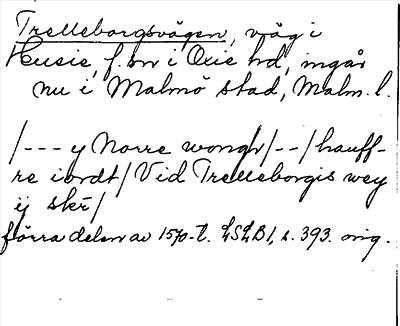 Trelleborgsvägen, väg i
Husie, f. sn i Oxie hd, ingår
nu i Malmö stad, Malm. l.
/--- y Norre wongh/--/ hauff-
re iordt/ Vid Trelleborgis wey
ij skr̄/
förra delen av 1570-t. LSLB1, s. 393. orig.